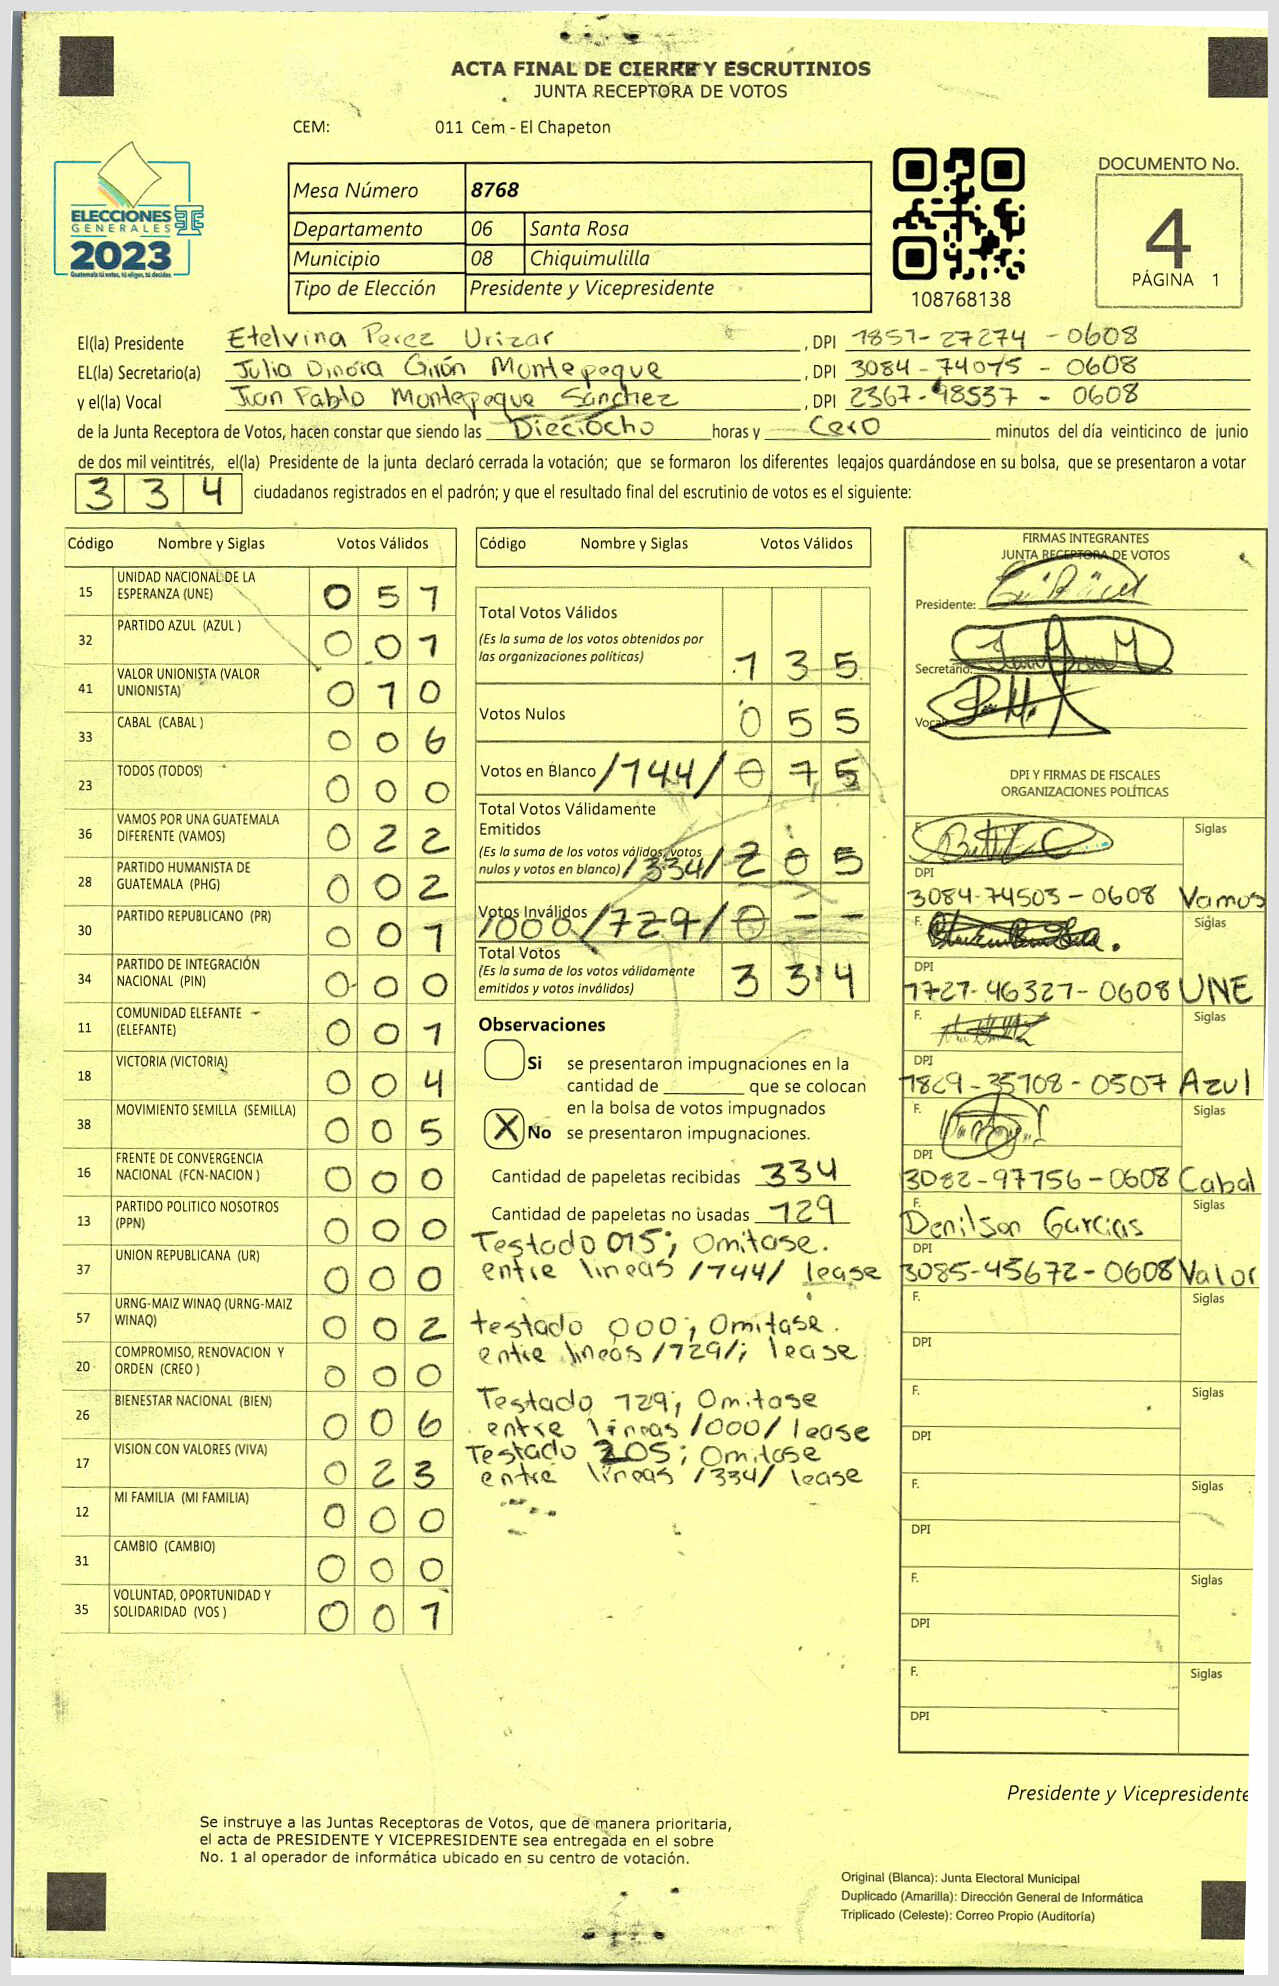 ACTA FINAL DE CIERRE Y ESCRUTINIOS
JUNTA RECEPTORA DE VOTOS
CEM: 011 Cem - El Chapeton
ELECCIONES
GENERALES
2023
Guatemala tú votas, tú eliges, tú decides
Mesa Número 8768
Departamento 06 Santa Rosa
Municipio 08 Chiquimulilla
Tipo de Elección Presidente y Vicepresidente
108768138
DOCUMENTO No.
4
PÁGINA 1
El(la) Presidente Etelvina Perez Urizar, DPI 1857-27274-0608
EL(la) Secretario(a) Julia Dinora Girón Montepeque, DPI 3084-74075-0608
y el(la) Vocal Juan Pablo Montepeque Sanchez, DPI 2367-48537-0608
de la Junta Receptora de Votos, hacen constar que siendo las Dieciocho horas y Cero minutos del día veinticinco de junio
de dos mil veintitrés, el(la) Presidente de la junta declaró cerrada la votación; que se formaron los diferentes legajos guardándose en su bolsa, que se presentaron a votar
334 ciudadanos registrados en el padrón; y que el resultado final del escrutinio de votos es el siguiente:
Código Nombre y Siglas Votos Válidos
15 UNIDAD NACIONAL DE LA ESPERANZA (UNE) 0 5 1
32 PARTIDO AZUL (AZUL ) 0 0 1
41 VALOR UNIONISTA (VALOR UNIONISTA) 0 1 0
33 CABAL (CABAL ) 0 0 6
23 TODOS (TODOS) 0 0 0
36 VAMOS POR UNA GUATEMALA DIFERENTE (VAMOS) 0 2 2
28 PARTIDO HUMANISTA DE GUATEMALA (PHG) 0 0 2
30 PARTIDO REPUBLICANO (PR) 0 0 1
34 PARTIDO DE INTEGRACIÓN NACIONAL (PIN) 0 0 0
11 COMUNIDAD ELEFANTE (ELEFANTE) 0 0 1
18 VICTORIA (VICTORIA) 0 0 4
38 MOVIMIENTO SEMILLA (SEMILLA) 0 0 5
16 FRENTE DE CONVERGENCIA NACIONAL (FCN-NACION ) 0 0 0
13 PARTIDO POLITICO NOSOTROS (PPN) 0 0 0
37 UNION REPUBLICANA (UR) 0 0 0
57 URNG-MAIZ WINAQ (URNG-MAIZ WINAQ) 0 0 2
20 COMPROMISO, RENOVACION Y ORDEN (CREO ) 0 0 0
26 BIENESTAR NACIONAL (BIEN) 0 0 6
17 VISION CON VALORES (VIVA) 0 2 3
12 MI FAMILIA (MI FAMILIA) 0 0 0
31 CAMBIO (CAMBIO) 0 0 0
35 VOLUNTAD, OPORTUNIDAD Y SOLIDARIDAD (VOS ) 0 0 1
Código Nombre y Siglas Votos Válidos
Total Votos Válidos
(Es la suma de los votos obtenidos por
las organizaciones politicas) 1 3 5
Votos Nulos 0 5 5
Votos en Blanco /144/ 0 1 5
Total Votos Válidamente
Emitidos
(Es la suma de los votos válidos, votos
nulos y votos en blanco) /334/ 2 0 5
Votos Inválidos /000/ /129/ 0 - -
Total Votos
(Es la suma de los votos válidamente
emitidos y votos inválidos) 3 3 4
Observaciones
Si se presentaron impugnaciones en la
cantidad de ________ que se colocan
en la bolsa de votos impugnados
X No se presentaron impugnaciones.
Cantidad de papeletas recibidas 334
Cantidad de papeletas no usadas 129
Testado 015; Omitase.
entre lineas /144/ lease
testado 000; Omitase.
entre lineas /129/; lease
Testado 129; Omitase
entre lineas /000/ lease
Testado 205; Omitase
entre lineas /334/ lease
FIRMAS INTEGRANTES
JUNTA RECEPTORA DE VOTOS
Presidente:
Secretario:
Vocal:
DPI Y FIRMAS DE FISCALES
ORGANIZACIONES POLÍTICAS
F. Siglas
DPI
3084-74503-0608 Vamos
F. Siglas
DPI
1727-46327-0608 UNE
F. Siglas
DPI
1869-35708-0507 Azul
F. Siglas
DPI
3082-97756-0608 Cabal
F. Siglas
Denilson Garcias
DPI
3085-45672-0608 Valor
F. Siglas
DPI
F. Siglas
DPI
F. Siglas
DPI
F. Siglas
DPI
F. Siglas
DPI
Presidente y Vicepresidente
Se instruye a las Juntas Receptoras de Votos, que de manera prioritaria,
el acta de PRESIDENTE Y VICEPRESIDENTE sea entregada en el sobre
No. 1 al operador de informática ubicado en su centro de votación.
Original (Blanca): Junta Electoral Municipal
Duplicado (Amarilla): Dirección General de Informática
Triplicado (Celeste): Correo Propio (Auditoría)